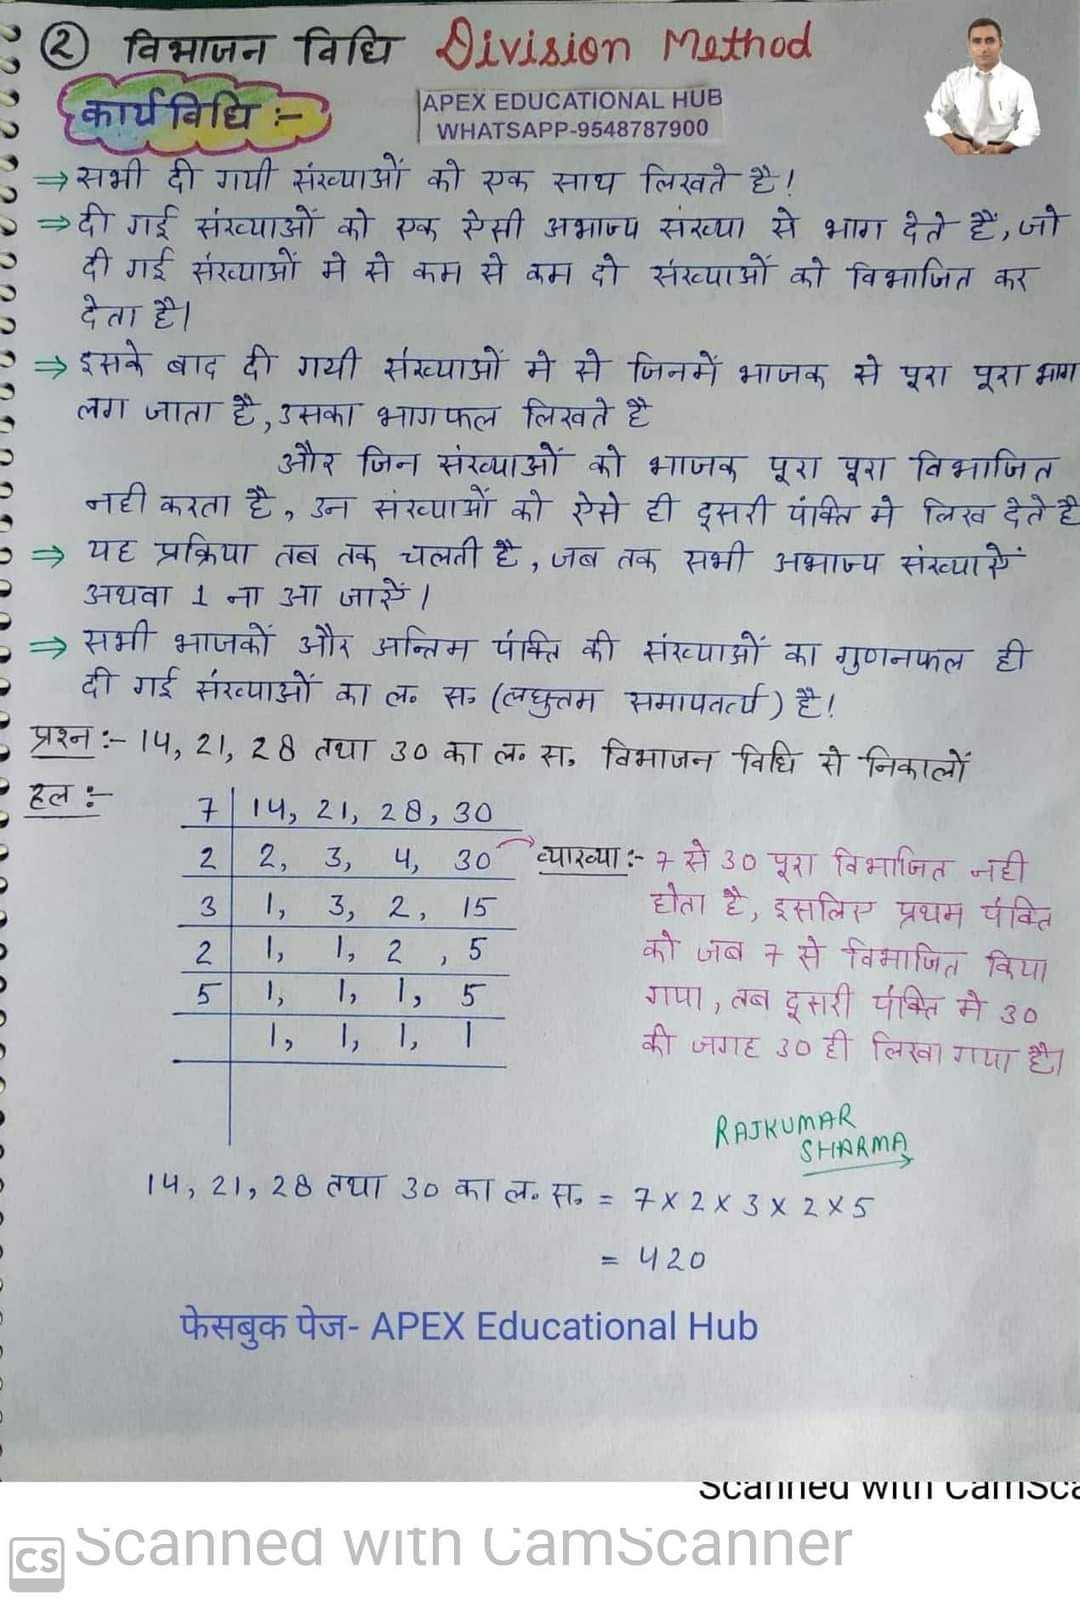 ② विभाजन विधि Division Method
कार्यविधि :-
APEX EDUCATIONAL HUB
WHATSAPP-9548787900
⇒ सभी दी गयी संख्याओं को एक साथ लिखते है!
⇒ दी गई संख्याओं को एक ऐसी अभाज्य संख्या से भाग देते हैं, जो
दी गई संख्याओं मे से कम से कम दो संख्याओं को विभाजित कर
देता है।
⇒ इसके बाद दी गयी संख्याओं मे से जिनमें भाजक से पूरा पूरा भाग
लग जाता है, उसका भागफल लिखते है
और जिन संख्याओं को भाजक पूरा पूरा विभाजित
नही करता है, उन संख्याओं को ऐसे ही दूसरी पंक्ति मे लिख देते है
⇒ यह प्रक्रिया तब तक चलती है, जब तक सभी अभाज्य संख्याऐं
अथवा 1 ना आ जाऐं।
⇒ सभी भाजकों और अन्तिम पंक्ति की संख्याओं का गुणनफल ही
दी गई संख्याओं का ल॰ स॰ (लघुत्तम समापतर्त्य) है!
प्रश्न :- 14, 21, 28 तथा 30 का ल॰ स॰ विभाजन विधि से निकालों
हल :-
7 | 14, 21, 28, 30
2 | 2, 3, 4, 30
3 | 1, 3, 2, 15
2 | 1, 1, 2, 5
5 | 1, 1, 1, 5
1, 1, 1, 1
व्याख्या :- 7 से 30 पूरा विभाजित नही
होता है, इसलिए प्रथम पंक्ति
को जब 7 से विभाजित किया
गया, तब दूसरी पंक्ति मे 30
की जगह 30 ही लिखा गया है।
RAJKUMAR
SHARMA
14, 21, 28 तथा 30 का ल॰ स॰ = 7 × 2 × 3 × 2 × 5
= 420
फेसबुक पेज- APEX Educational Hub
Scanned with CamSca
CS Scanned with CamScanner